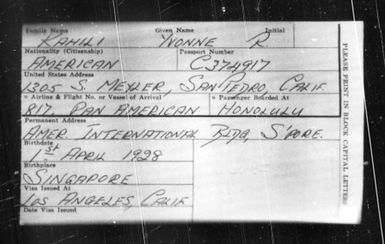 Family Name Given Name Initial
TAHILI YVONNE R
Nationality (Citizenship) Passport Number
AMERICAN C374917
United States Address
1305 S. MEYLER, SAN PEDRO, CALIF
Airline & Flight No. or Vessel of Arrival Passenger Boarded At
817 PAN AMERICAN HONOLULU
Permanent Address
AMER. INTERNATIONAL BLDG, S'PORE.
Birthdate
1st APRIL 1928
Birthplace
SINGAPORE
Visa Issued At
LOS ANGELES, CALIF
Date Visa Issued
PLEASE PRINT IN BLOCK CAPITAL LETTERS